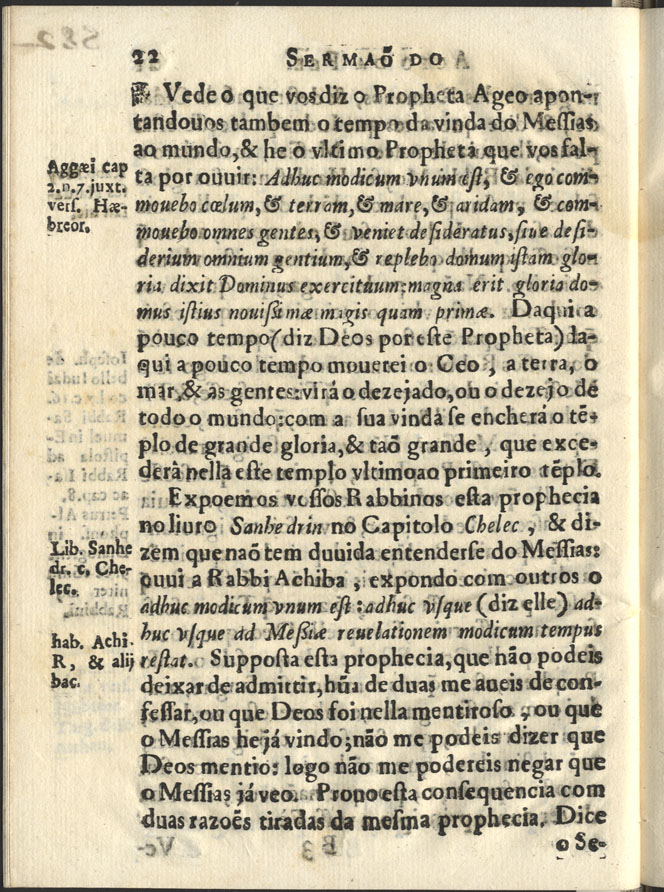 22 SERMAÕ DO
Vede o que vos diz o Propheta Ageo apon-
tandouos tambem o tempo da vinda do Messias
ao mundo, & he o vltimo Propheta que vos fal-
Aggæi cap
2. n. 7. juxt.
vers. Hæ-
breor.
ta por ouuir: Adhuc modicum vnum est, & ego com-
mouebo cœlum, & terram, & mare, & aridam, & com-
mouebo omnes gentes, & veniet desideratus, siue desi-
derium omnium gentium, & replebo domum istam glo-
ria dixit Dominus exercituum: magna erit gloria do-
mus istius nouissimæ magis quam primæ. Daqui a
pouco tempo (diz Deos por este Propheta) da-
qui a pouco tempo mouerei o Ceo, a terra, o
mar, & as gentes: virá o dezejado, ou o dezejo de
todo o mundo: com a sua vinda se encherá o tẽ-
plo de grande gloria, & taõ grande, que exce-
derà nella este templo vltimo ao primeiro tẽplo.
Expoem os vossos Rabbinos esta prophecia
no liuro Sanhedrin no Capitolo Chelec, & di-
Lib. Sanhe
dr. c. Che-
lec.
zem que naõ tem duuida entenderse do Messias:
ouui a Rabbi Achiba, expondo com outros o
adhuc modicum vnum est: adhuc vsque (diz elle) ad-
huc vsque ad Messiæ reuelationem modicum tempus
hab. Achi.
R, & alij
bac.
restat. Supposta esta prophecia, que não podeis
deixar de admittir, hũa de duas me aueis de con-
fessar, ou que Deos foi nella mentiroso, ou que
o Messias he já vindo; não me podeis dizer que
Deos mentio: logo não me podereis negar que
o Messias já veo. Prouo esta consequencia com
duas razoẽs tiradas da mesma prophecia. Dice
o Se-